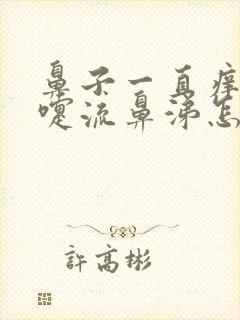 鼻子一直痒
嚏流鼻涕怎
許高彬